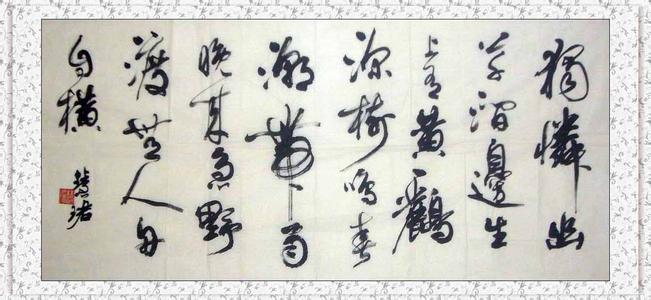 獨憐幽
草澗邊生
上有黄鸝
深樹鳴春
潮帶雨
晚来急野
渡無人舟
自橫